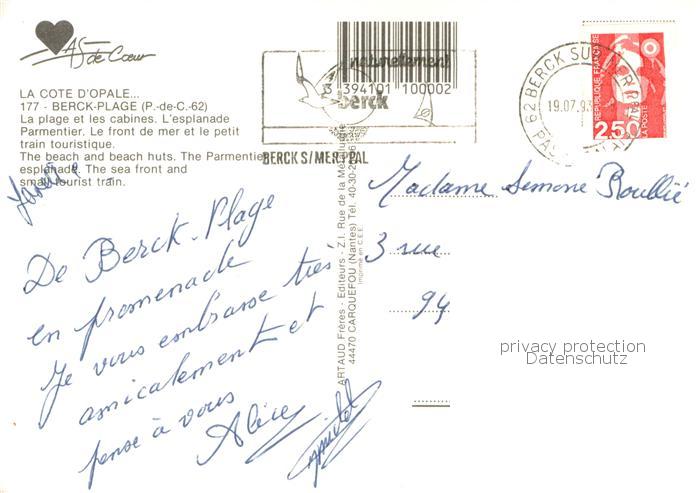 As de Cœur
LA COTE D'OPALE...
177 - BERCK-PLAGE (P.-de-C.-62)
La plage et les cabines. L'esplanade
Parmentier. Le front de mer et le petit
train touristique.
The beach and beach huts. The Parmentier
esplanade. The sea front and
small tourist train.
De Berck-Plage
en promenade
Je vous embrasse très
amicalement et
pense à vous
Alice
naturellement
3 394101 100002
berck
BERCK S/MER PAL
ARTAUD Frères - Editeurs - Z.I. Rue de la Métallurgie
44470 CARQUEFOU (Nantes) Tél. 40-30-
Imprimé en C.E.E.
62 BERCK SUR MER
19.07.93
PAS
REPUBLIQUE FRANÇAISE
2,50
LA POSTE
Madame Simone
3 rue
94
privacy protection
Datenschutz